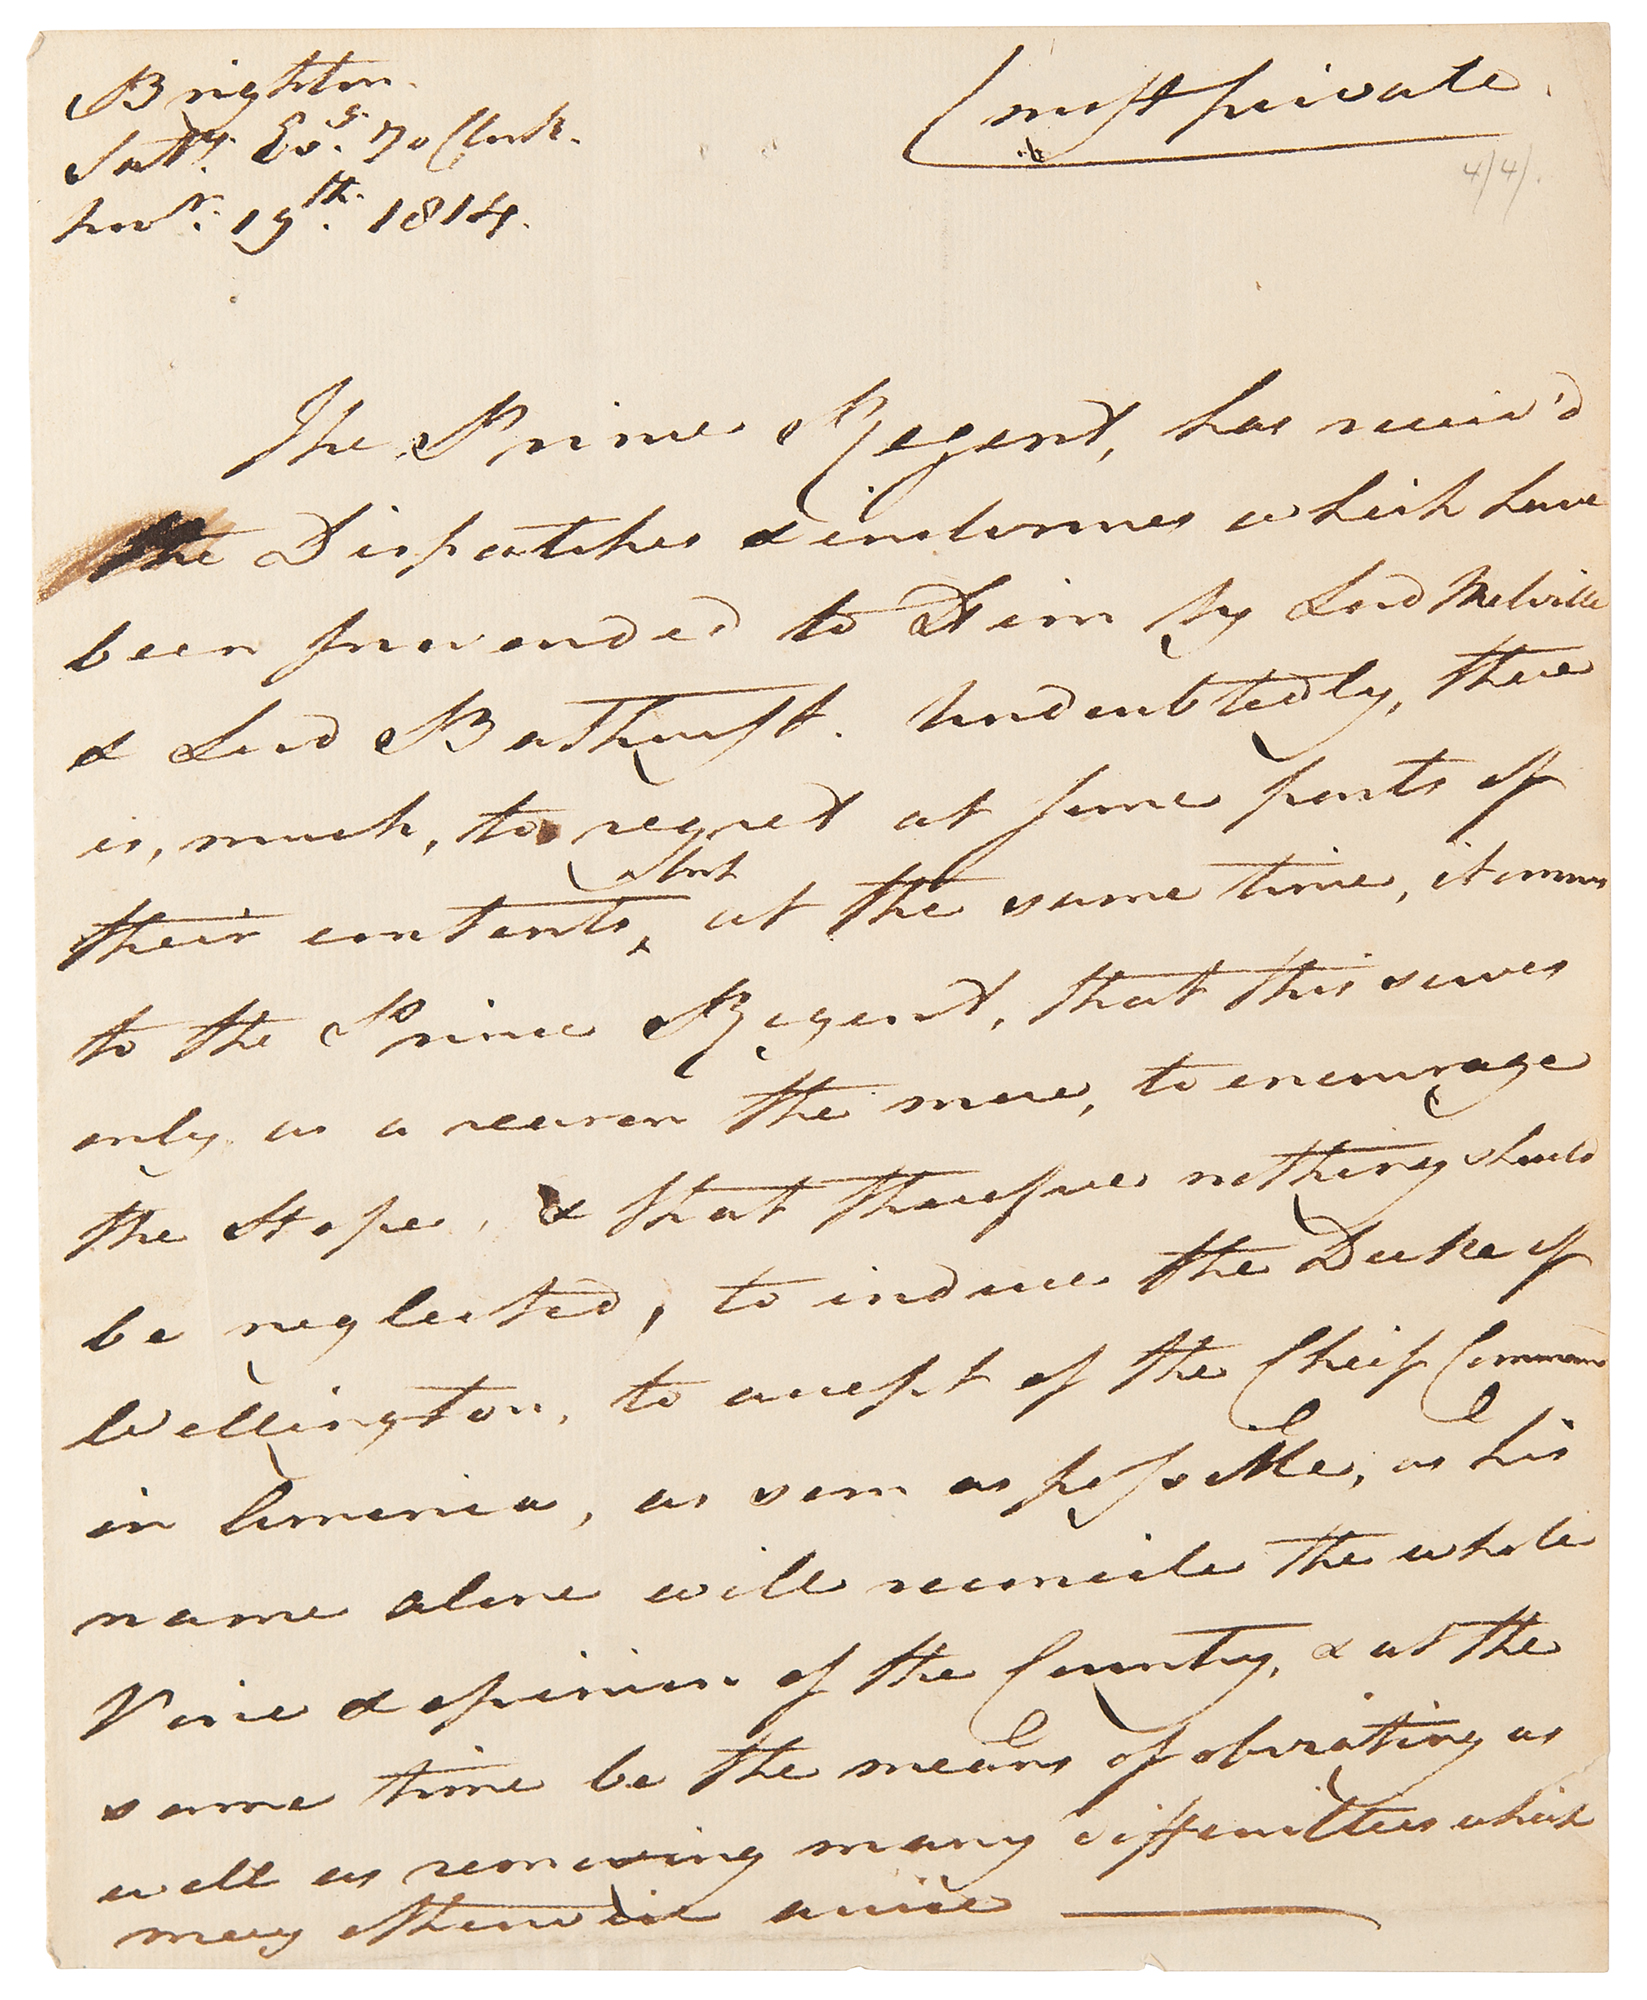 Brighton.
Saty. Evg. 7 o Clock.
Novr. 19th. 1814.
(most private.
4/4/.
The Prince Regent, has receiv'd
the Dispatches & inclosures which have
been forwarded to Him by Lord Melville
& Lord Bathurst. Undoubtedly, there
is, much, to regret at some parts of
their contents, but at the same time, it occurs
to the Prince Regent, that this serves
only as a reason the more, to encourage
the Hope, & that therefore nothing should
be neglected, to induce the Duke of
Wellington, to accept of the Cheif Command
in America, as soon as possible, as his
name alone will reconcile the whole
Voice & opinion of the Country, & at the
same time be the means of obviating as
well as removing many difficulties which
may otherwise arise